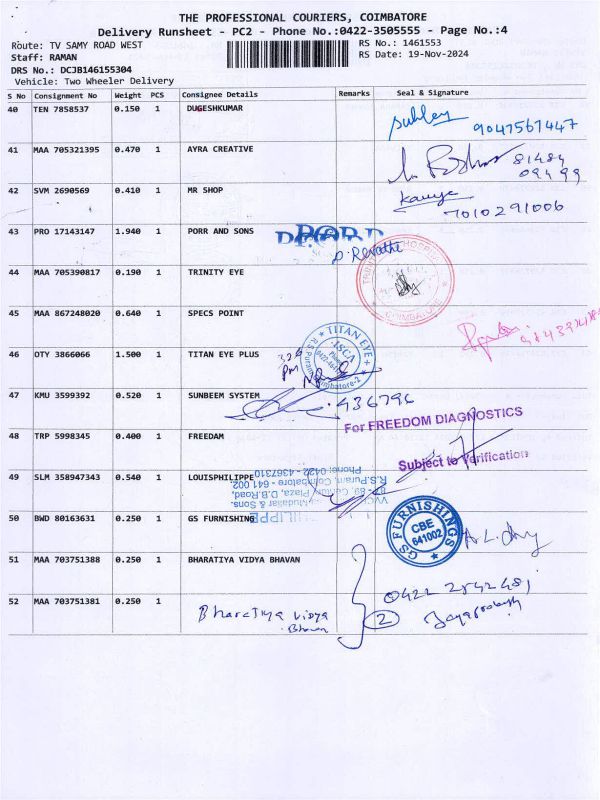 THE PROFESSIONAL COURIERS, COIMBATORE
Delivery Runsheet - PC2 - Phone No.:0422-3505555 - Page No.:4
Route: TV SAMY ROAD WEST
Staff: RAMAN
DRS No.: DCJB146155304
Vehicle: Two Wheeler Delivery
RS No.: 1461553
RS Date: 19-Nov-2024
S No Consignment No Weight PCS Consignee Details Remarks Seal & Signature
40 TEN 7858537 0.150 1 DUGESHKUMAR
9047567447
41 MAA 705321395 0.470 1 AYRA CREATIVE
81484
09499
42 SVM 2690569 0.410 1 MR SHOP
Kaniya
7010291006
43 PRO 17143147 1.940 1 PORR AND SONS
P. Revathi
44 MAA 705390817 0.190 1 TRINITY EYE
COIMBATORE
45 MAA 867248020 0.640 1 SPECS POINT
46 OTY 3866066 1.500 1 TITAN EYE PLUS
TITAN EYE+
47 KMU 3599392 0.520 1 SUNBEEM SYSTEM
436796
For FREEDOM DIAGNOSTICS
48 TRP 5998345 0.400 1 FREEDAM
Subject to Verification
49 SLM 358947343 0.540 1 LOUISPHILIPPE
Phone: 0422-4367310
R.S.Puram, Coimbatore - 641 002.
Plaza, D.B.Road,
Mudaliar & Sons
50 BWD 80163631 0.250 1 GS FURNISHING
GS FURNISHINGS
CBE
641002
51 MAA 703751388 0.250 1 BHARATIYA VIDYA BHAVAN
0422 2542481
52 MAA 703751381 0.250 1
Bharatiya Vidya
Bhavan
2
Jayaprakash